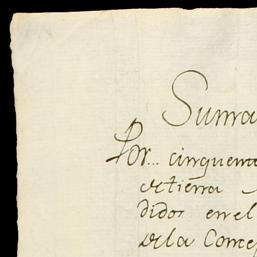 Suma
Por... cinquenta
de tierra
didos en el
de la Conce